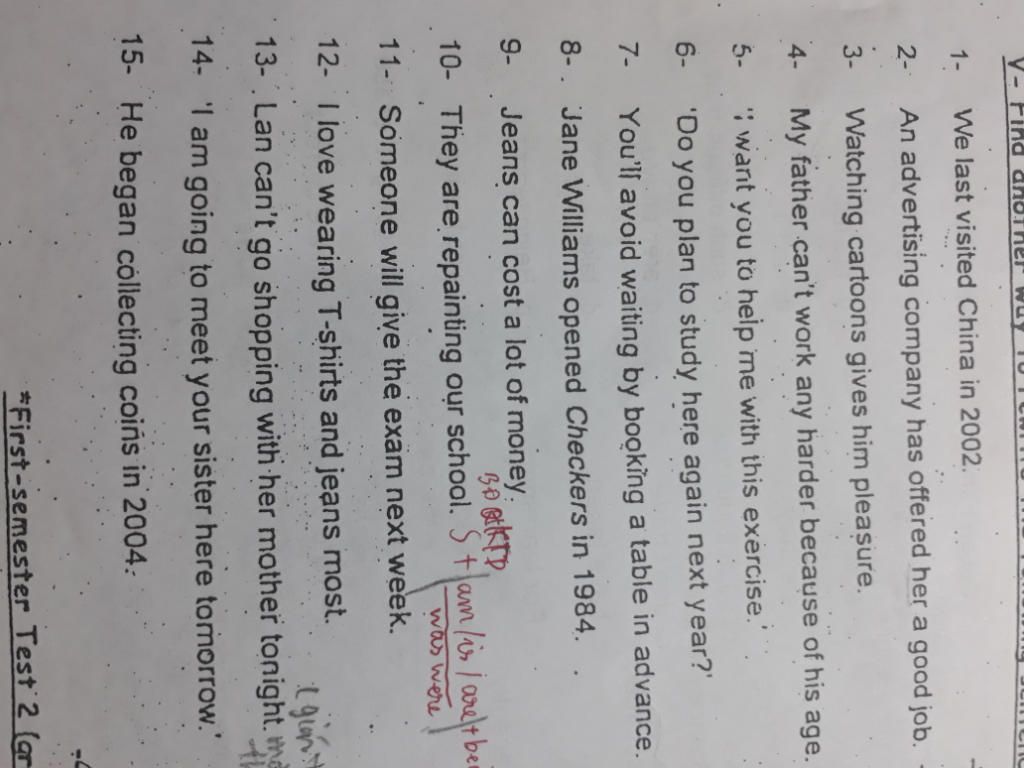 V- Find another way to rewrite
1- We last visited China in 2002.
2- An advertising company has offered her a good job.
3- Watching cartoons gives him pleasure.
4- My father can't work any harder because of his age.
5- 'I want you to help me with this exercise.'
6- 'Do you plan to study here again next year?'
7- You'll avoid waiting by booking a table in advance.
8- Jane Williams opened Checkers in 1984.
9- Jeans can cost a lot of money.
10- They are repainting our school. S + am/is/are + bei
was were
11- Someone will give the exam next week.
12- I love wearing T-shirts and jeans most.
13- Lan can't go shopping with her mother tonight.
14- 'I am going to meet your sister here tomorrow.'
15- He began collecting coins in 2004.
*First-semester Test 2 (